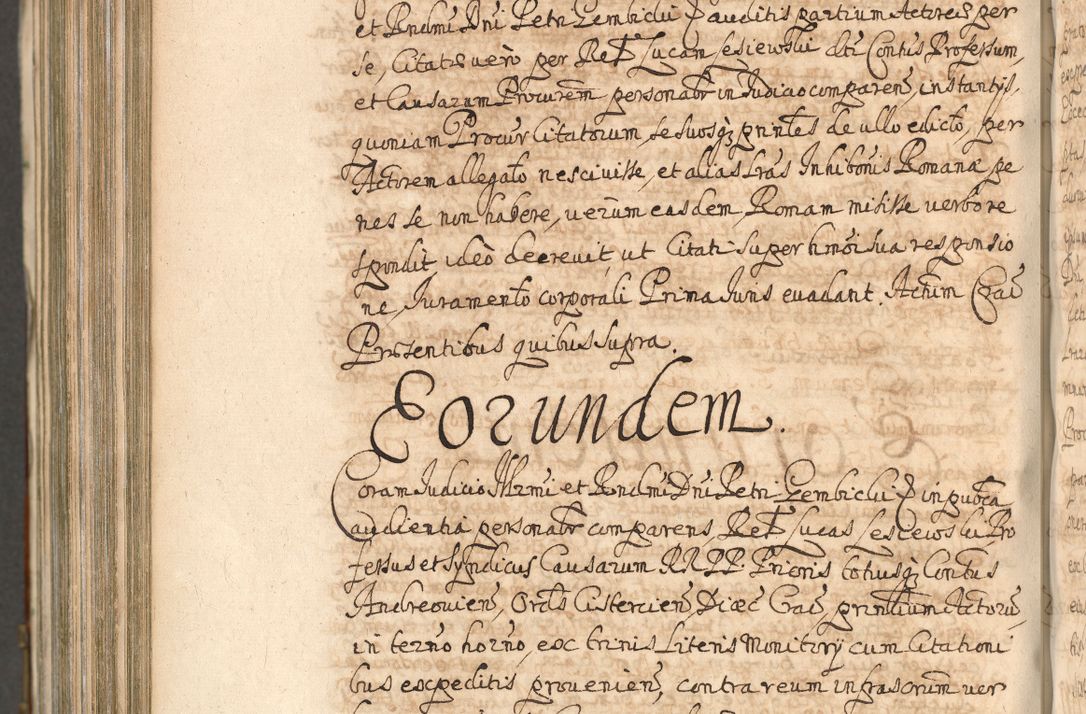 et Rndmi Dni Petri Gembicki P auditis partium Actoreis per
se, Citatis vero per Relt Lucam Lesiewski dti Contis Professum,
et Causarum Procurem personalr in Iudicio comparen, instantys,
quoniam Procur Citatorum, se suosq; prntes de ullo edicto, per
Actorem allegato nescivisse, et alias Lras Inhibonis Romanæ pe
nes se non habere, verum easdem Romam misisse verbo re
spondit, ideò decrevit, ut Citati super hmoi sua responsio
ne, Iuramento corporali Prima Iuris evadant. Actum Crac
Præsentibus quibus supra.
Eorundem.
Coram Iudicio Illrmi et Rndmi Dni Petri Gembicki P in publca
audientia personalr comparens Relt Lucas Lesiewski Pro
fessus et Syndicus Causarum RRPP. Prioris totiusq; Contus
Andreovien, Ordis Cistercien Diæc Crac, prntium Actoru
in termo horno, ex trinis Literis Monitory cum Citationi
bus expeditis provenien, contra reum infrascrum ver